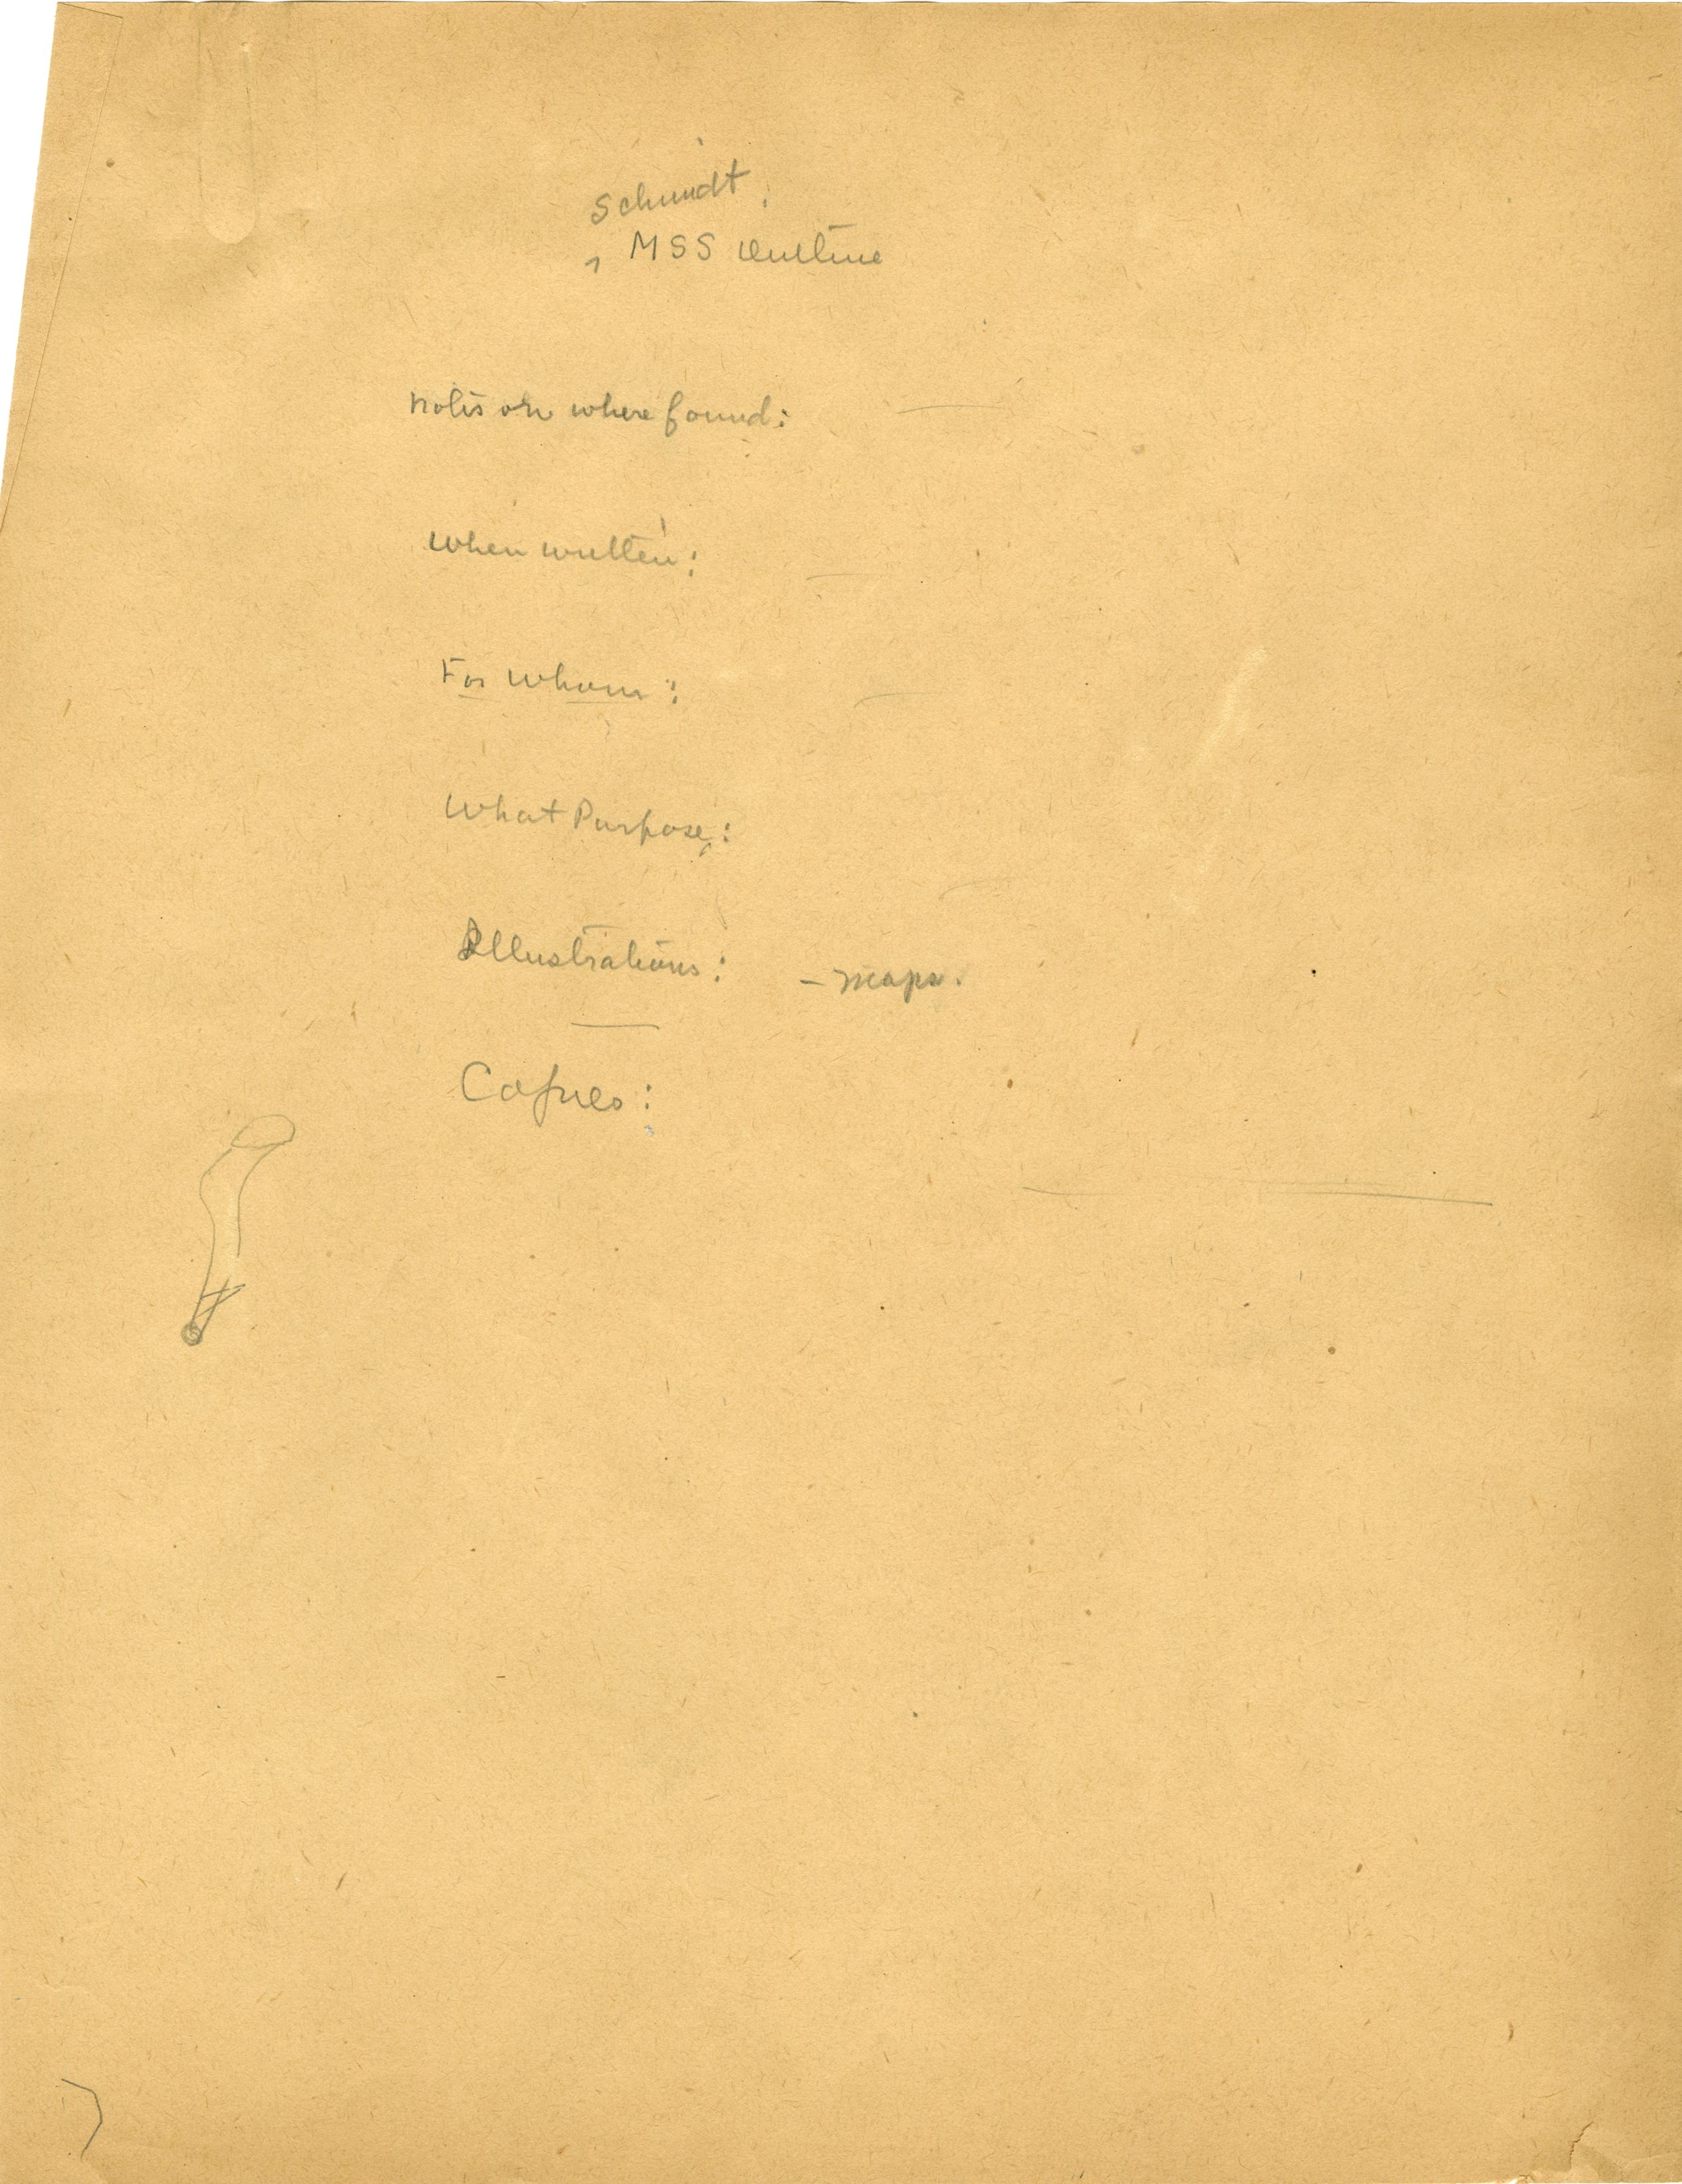 Schmidt
MSS Outline
Notes on where found:
When written:
For Whom:
What Purpose:
Illustrations: - Maps.
Copies: